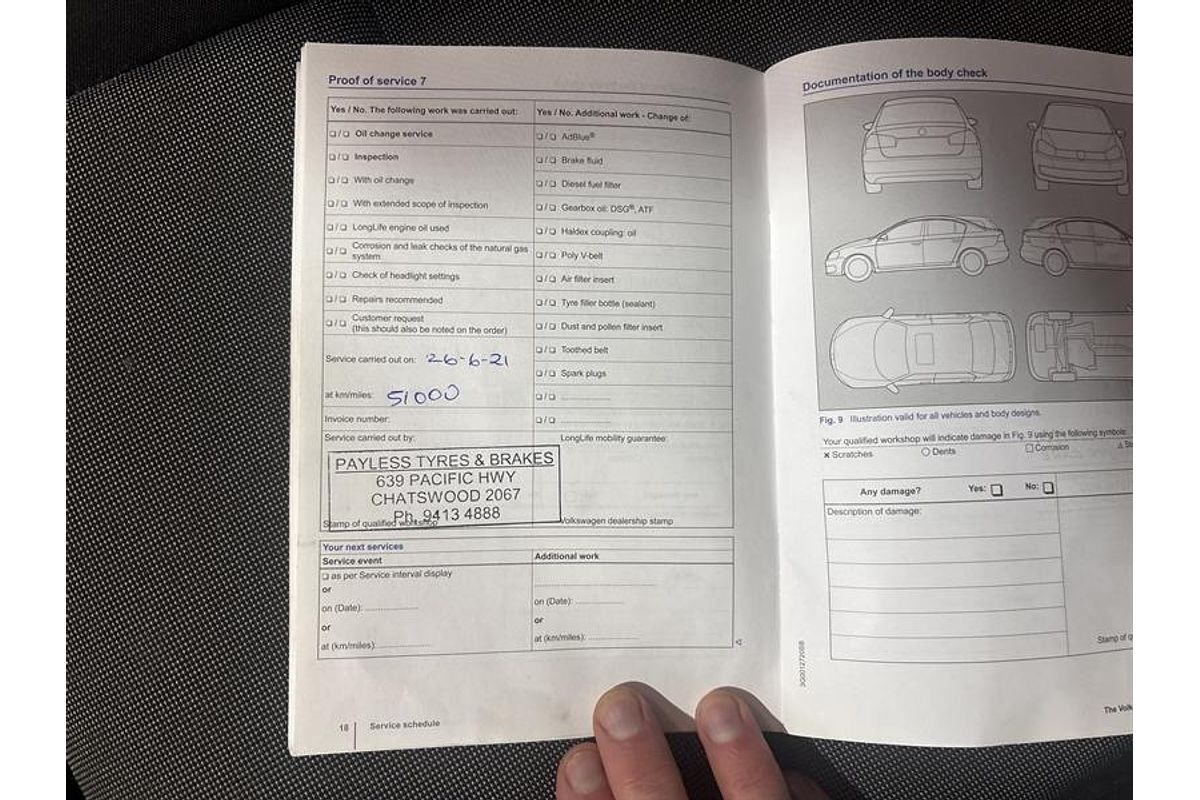 Proof of service 7
Yes / No. The following work was carried out:
❏/❏ Oil change service
❏/❏ Inspection
❏/❏ With oil change
❏/❏ With extended scope of inspection
❏/❏ LongLife engine oil used
❏/❏ Corrosion and leak checks of the natural gas
system
❏/❏ Check of headlight settings
❏/❏ Repairs recommended
❏/❏ Customer request
(this should also be noted on the order)
Service carried out on: 26-6-21
at km/miles: 51000
Invoice number:
Service carried out by:
PAYLESS TYRES & BRAKES
639 PACIFIC HWY
CHATSWOOD 2067
Ph. 9413 4888
Stamp of qualified workshop
Yes / No. Additional work - Change of:
❏/❏ AdBlue®
❏/❏ Brake fluid
❏/❏ Diesel fuel filter
❏/❏ Gearbox oil: DSG®, ATF
❏/❏ Haldex coupling: oil
❏/❏ Poly V-belt
❏/❏ Air filter insert
❏/❏ Tyre filler bottle (sealant)
❏/❏ Dust and pollen filter insert
❏/❏ Toothed belt
❏/❏ Spark plugs
❏/❏ ....................
❏/❏ ....................
LongLife mobility guarantee:
Volkswagen dealership stamp
Your next services
Service event
❏ as per Service interval display
or
on (Date): ....................
or
at (km/miles): ....................
Additional work
....................
on (Date): ....................
or
at (km/miles): ....................
18
Service schedule
Documentation of the body check
Fig. 9 Illustration valid for all vehicles and body designs.
Your qualified workshop will indicate damage in Fig. 9 using the following symbols:
× Scratches ○ Dents □ Corrosion △ St
Any damage? Yes: ❏ No: ❏
Description of damage:
Stamp of q
3G0012720BB
The Volk